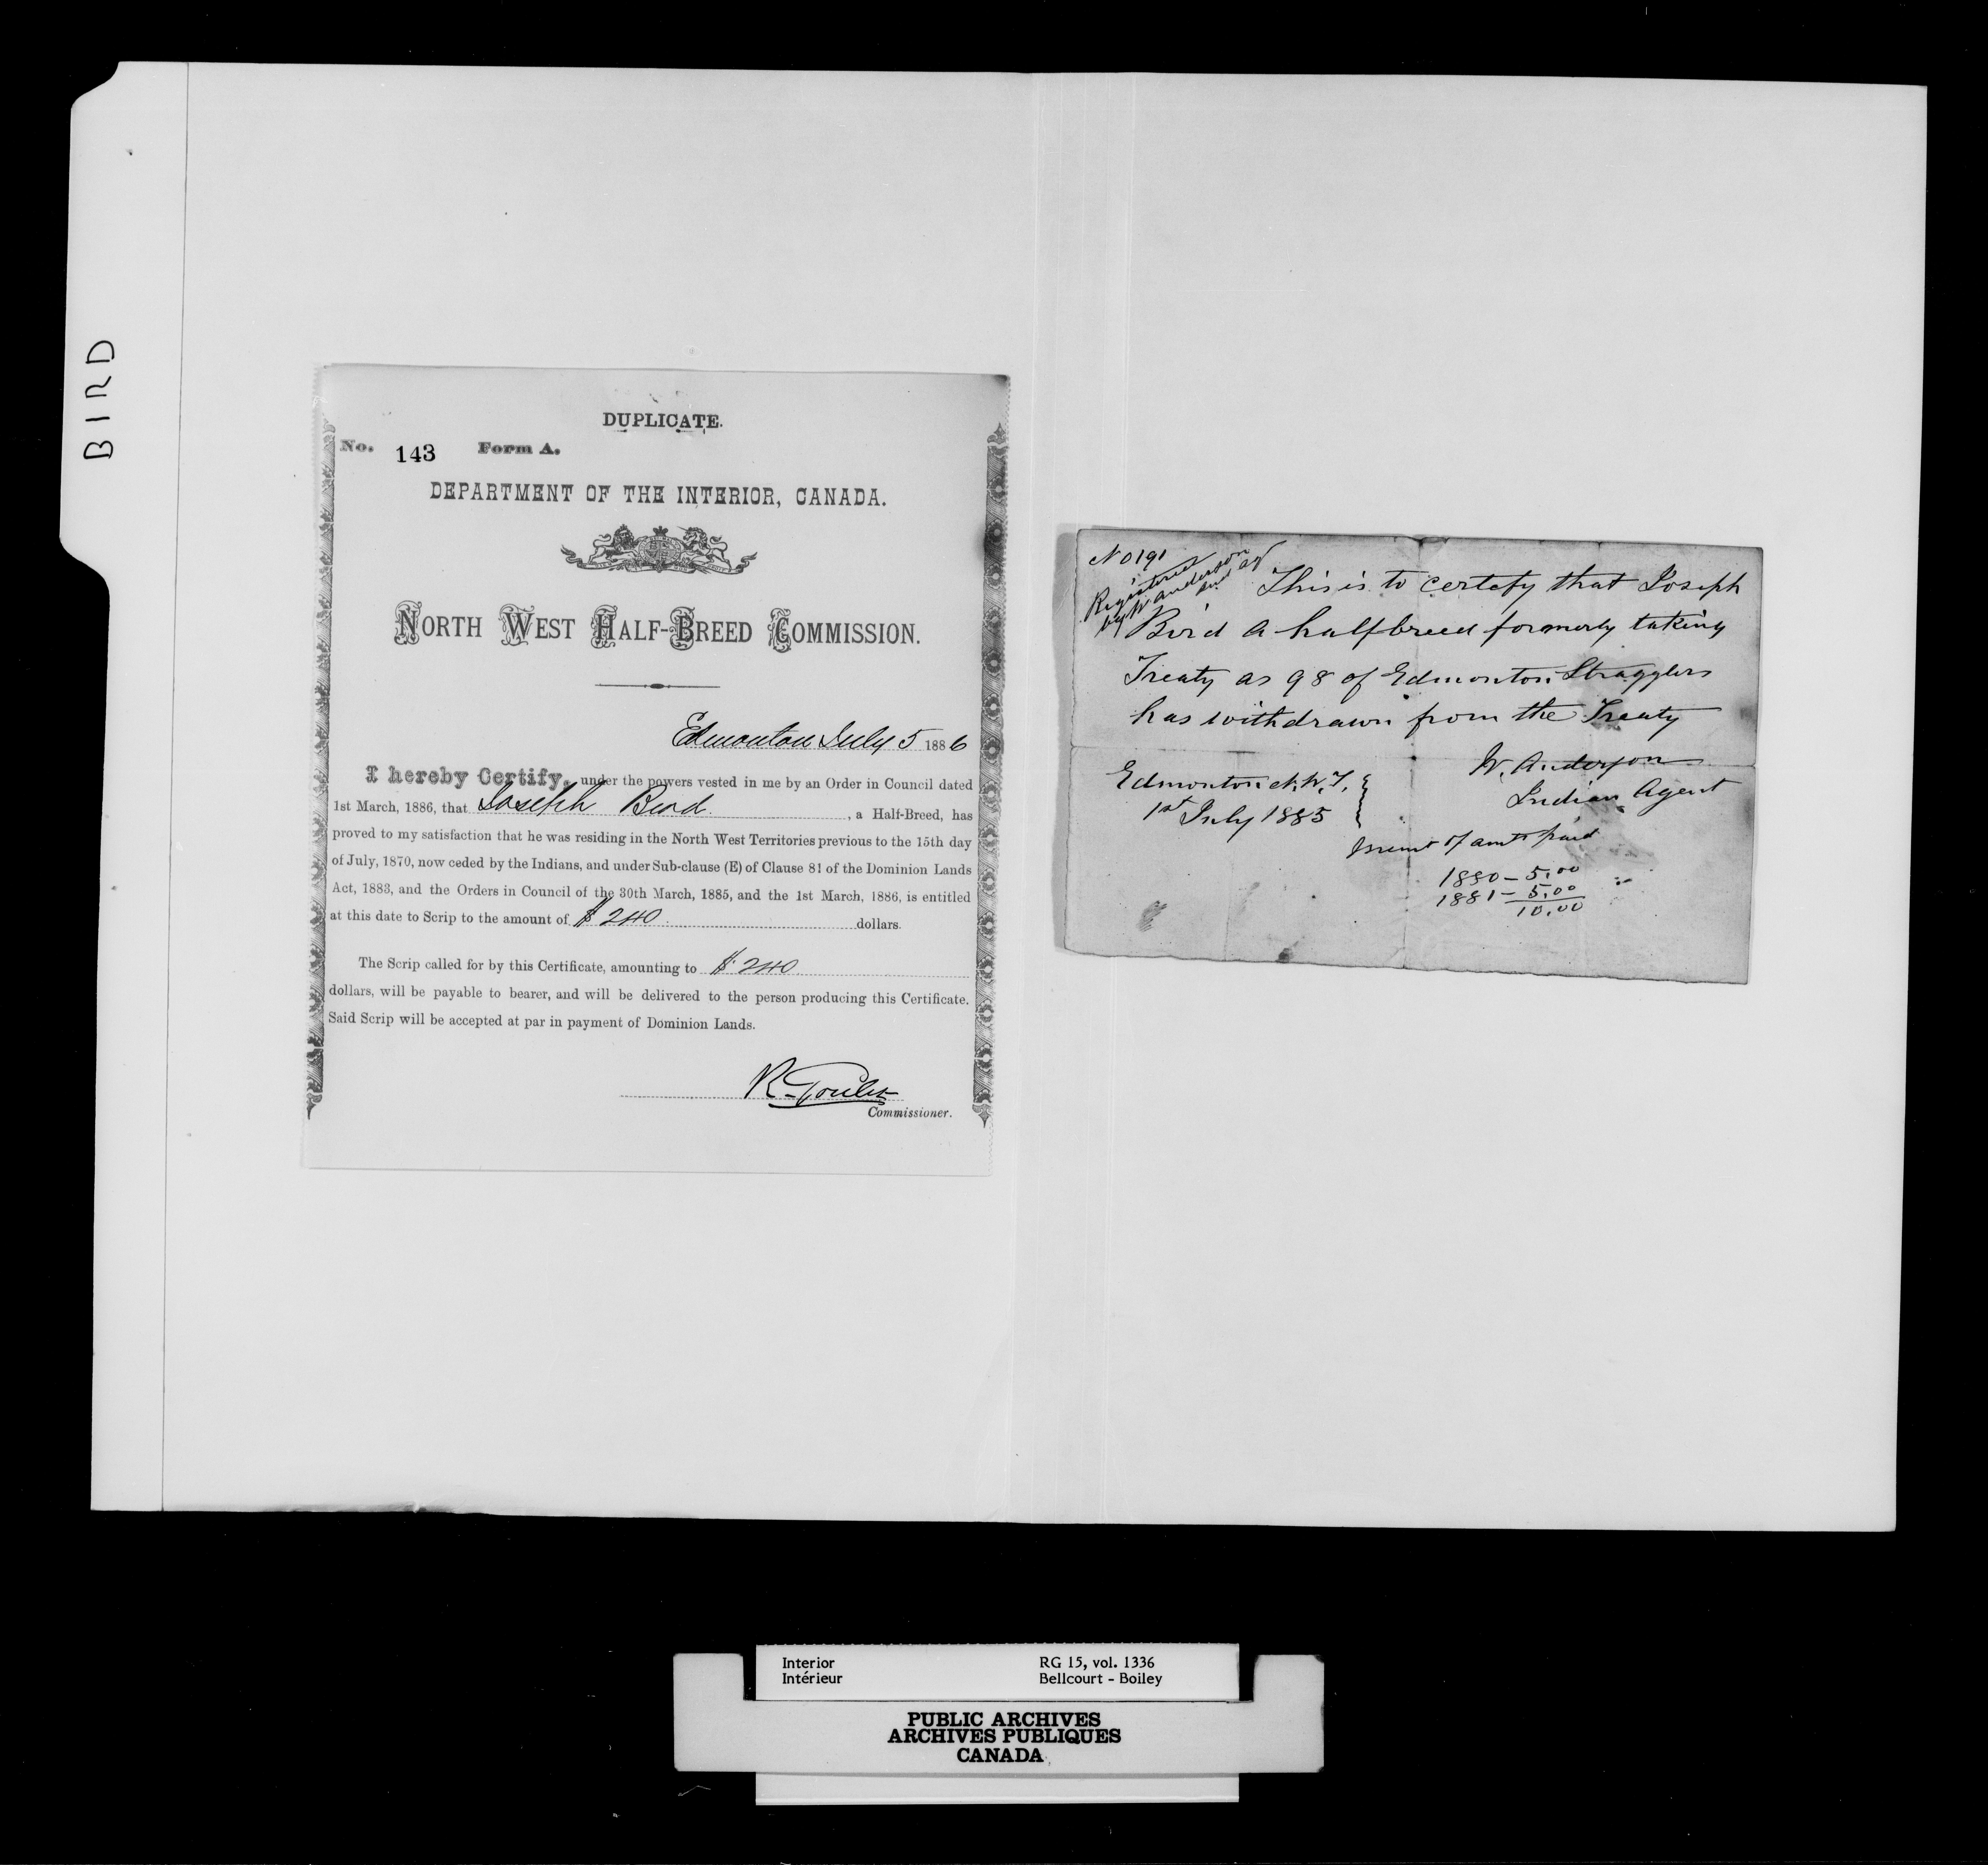 BIRD
DUPLICATE.
No. 143 Form A.
DEPARTMENT OF THE INTERIOR, CANADA.
NORTH WEST HALF-BREED COMMISSION.
Edmonton July 5 1886
I hereby Certify, under the powers vested in me by an Order in Council dated
1st March, 1886, that Joseph Bird , a Half-Breed, has
proved to my satisfaction that he was residing in the North West Territories previous to the 15th day
of July, 1870, now ceded by the Indians, and under Sub-clause (E) of Clause 81 of the Dominion Lands
Act, 1883, and the Orders in Council of the 30th March, 1885, and the 1st March, 1886, is entitled
at this date to Scrip to the amount of $ 240 dollars.
The Scrip called for by this Certificate, amounting to $ 240
dollars, will be payable to bearer, and will be delivered to the person producing this Certificate.
Said Scrip will be accepted at par in payment of Dominion Lands.
R. Goulet
Commissioner.
No 191
Registered
by W Anderson
Ind Ag
This is to certefy that Joseph
Bird a halfbreed formerly taking
Treaty as 98 of Edmonton Stragglers
has withdrawn from the Treaty
W. Anderson
Indian Agent
Edmonton N.W.T.
1st July 1885
of amts paid
1880 – 5.00
1881 – 5.00
10.00
Interior RG 15, vol. 1336
Intérieur Bellcourt - Boiley
PUBLIC ARCHIVES
ARCHIVES PUBLIQUES
CANADA